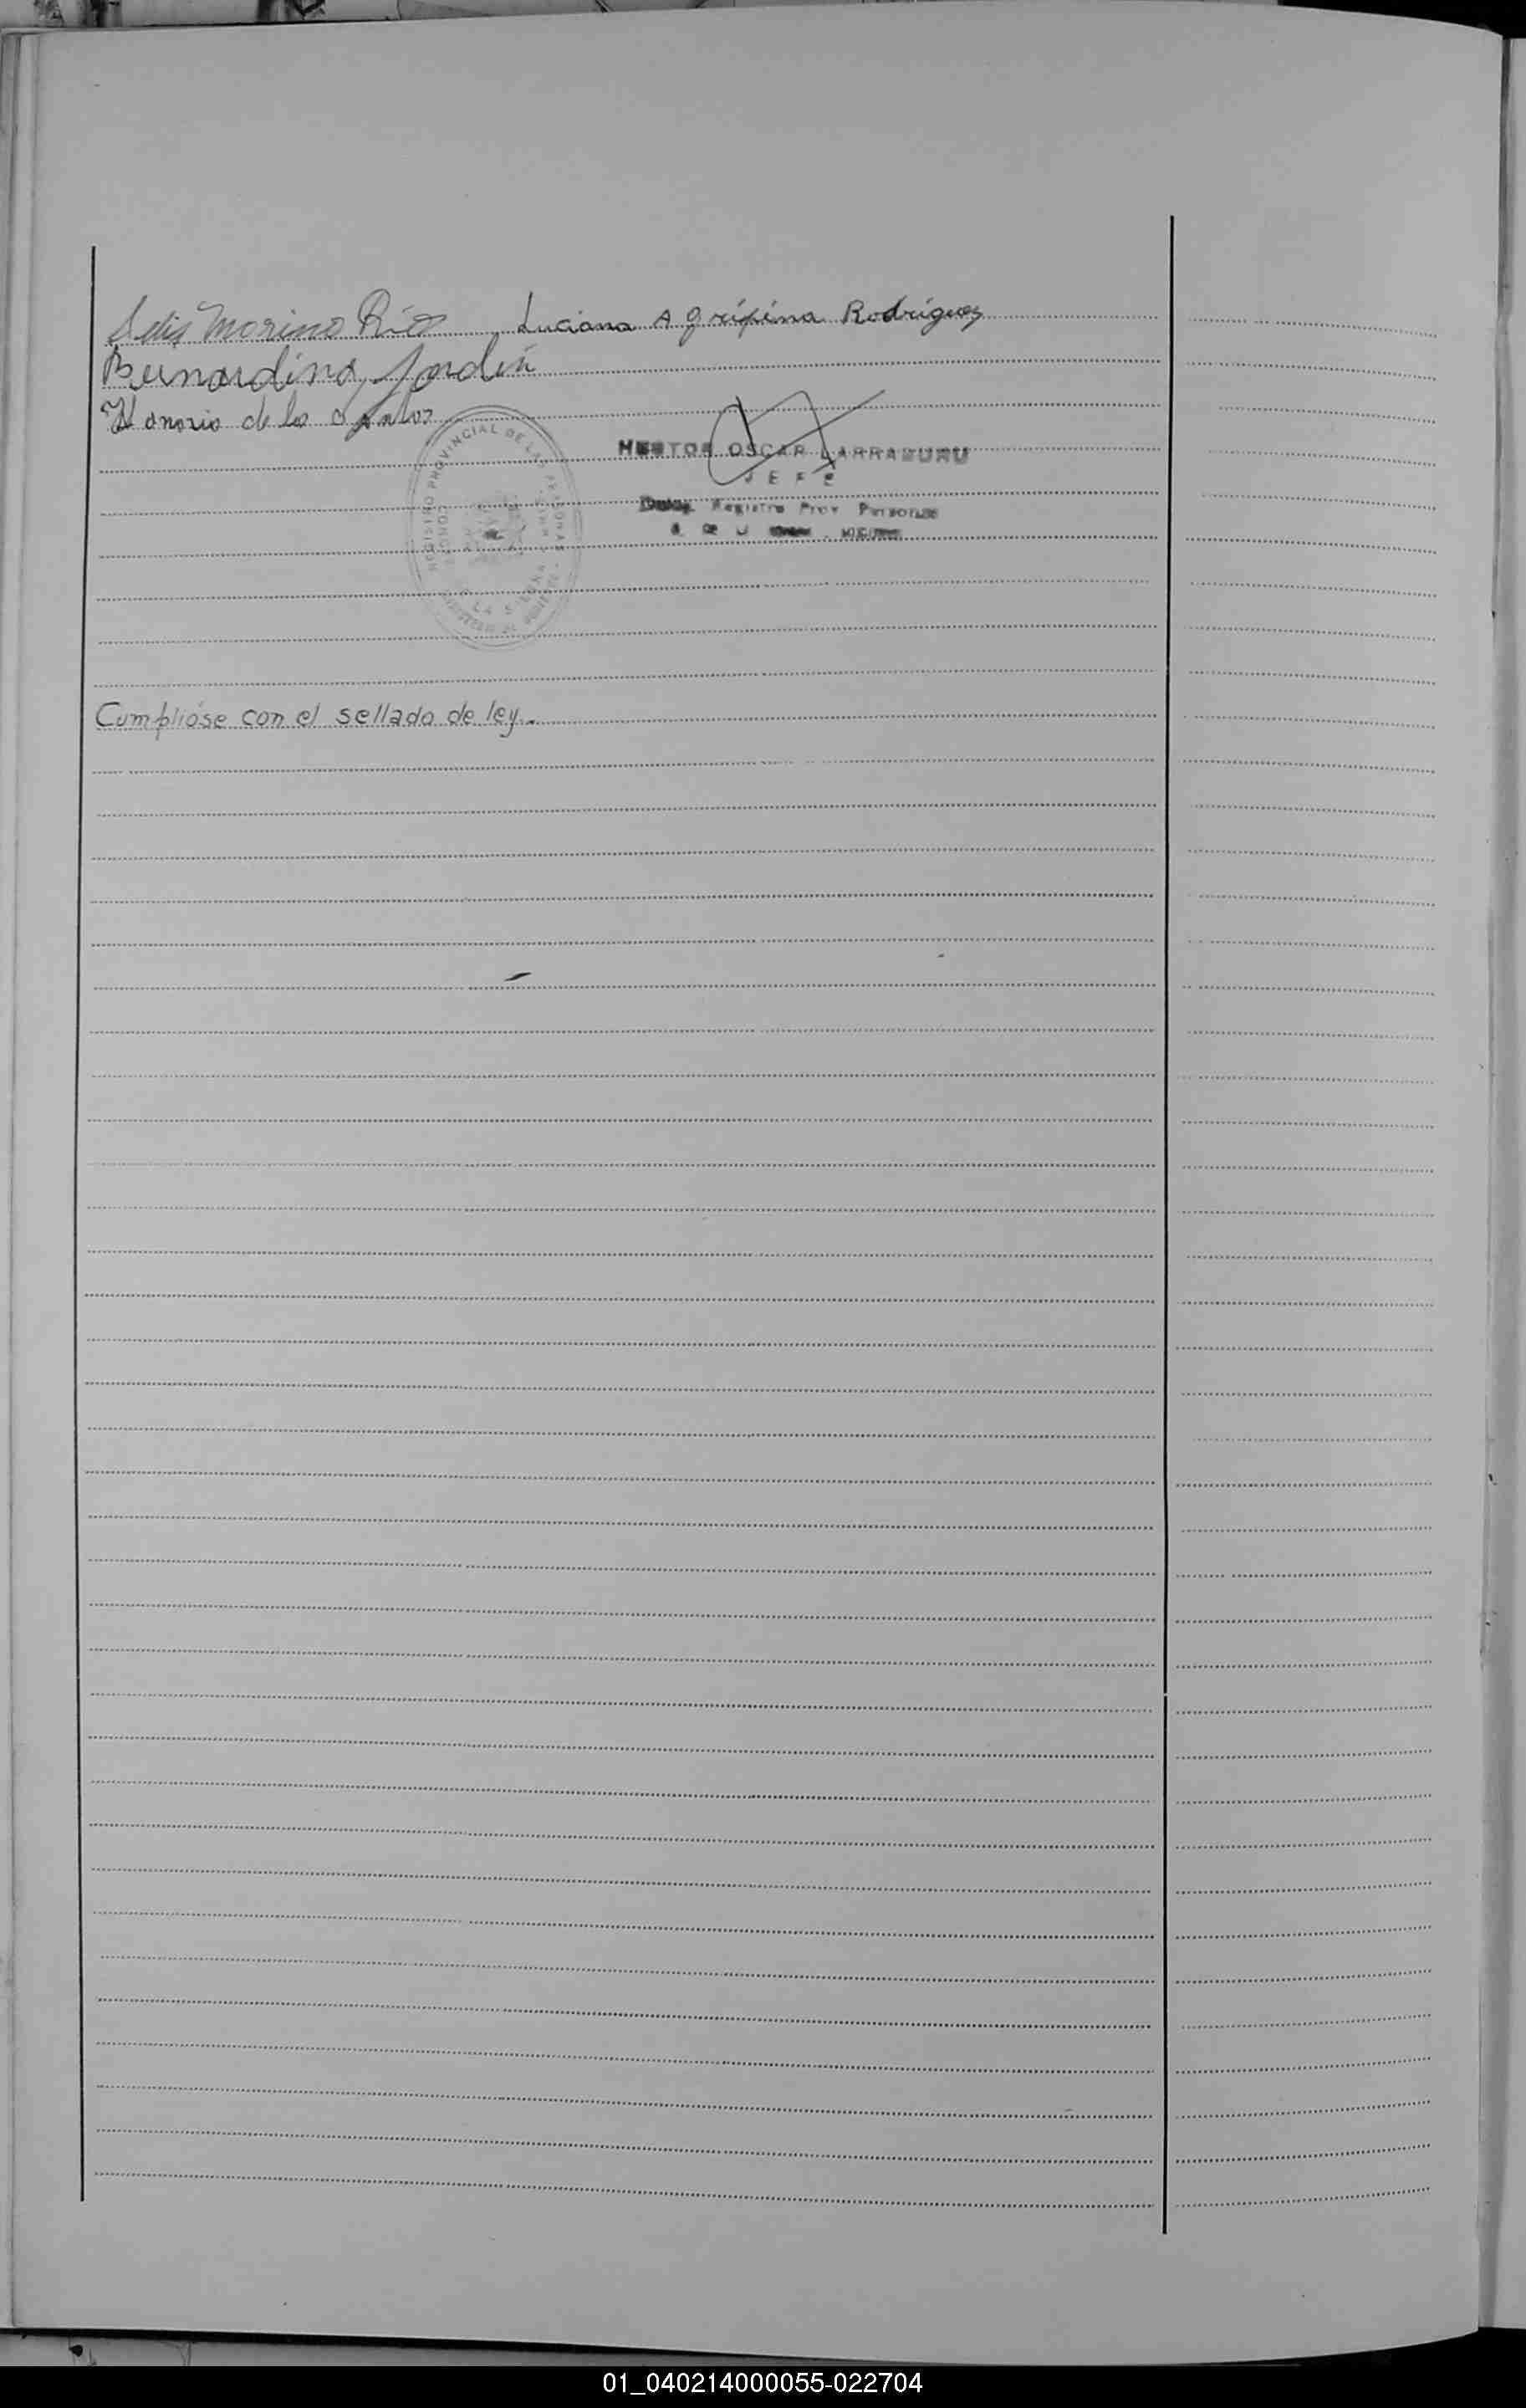 Morino Ríos Luciana Agripina Rodrigues
Bernardina Jordán
Honorio de los Santos
REGISTRO PROVINCIAL DE LAS PERSONAS
HECTOR OSCAR LARRABURU
JEFE
Deleg. Registro Prov. Personas
Cumplióse con el sellado de ley.-
01_040214000055-022704